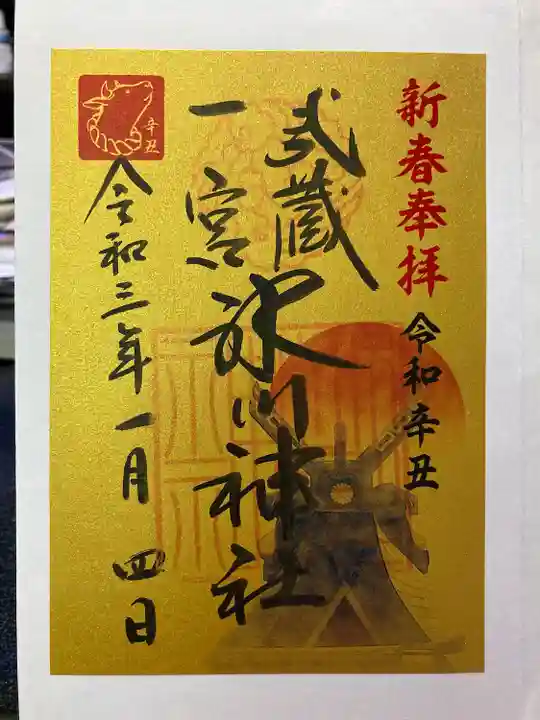 新春奉拝
令和辛丑
武蔵
一宮
氷川神社
令和三年一月四日
辛丑